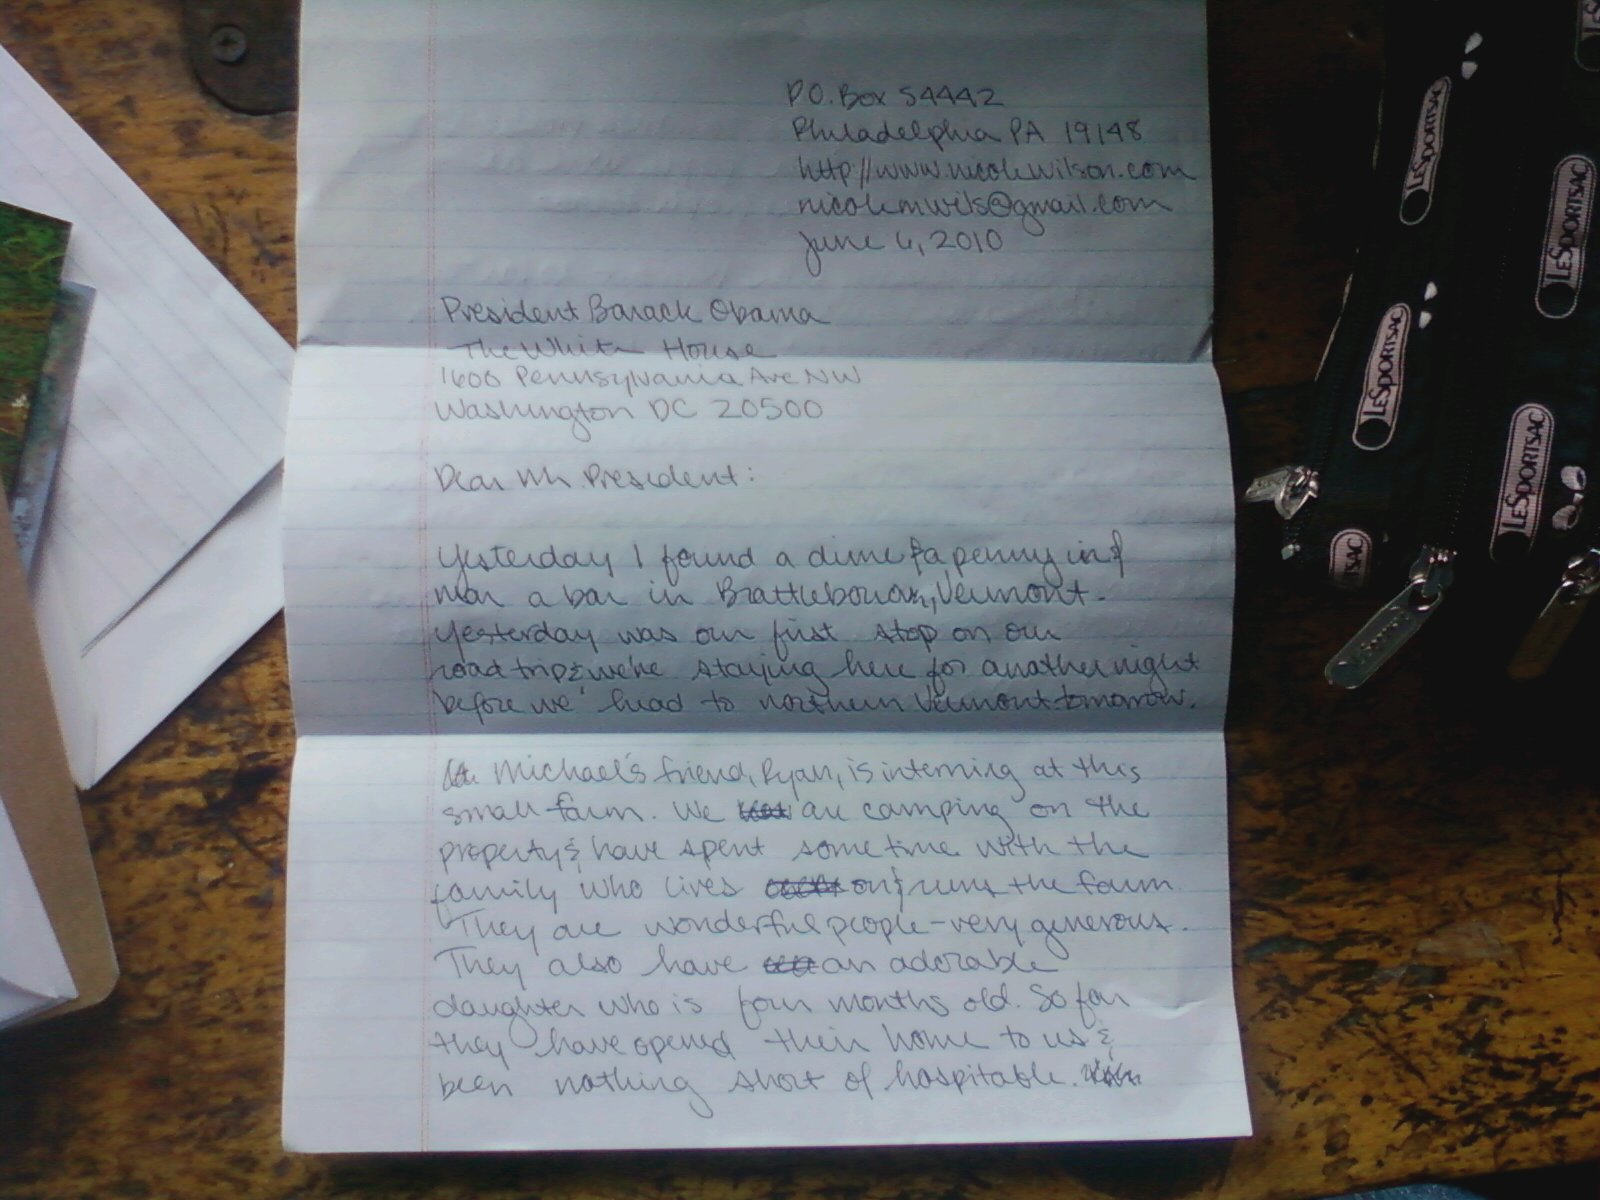 P.O. Box 54442
Philadelphia PA 19148
http://www.nicolewilson.com
nicolemwils@gmail.com
June 6, 2010
President Barack Obama
The White House
1600 Pennsylvania Ave NW
Washington DC 20500
Dear Mr. President:
Yesterday I found a dime & a penny in &
near a bar in Brattleborough, Vermont.
Yesterday was our first stop on our
road trip & we're staying here for another night
before we head to northern Vermont tomorrow.
Michael's friend, Ryan, is interning at this
small farm. We are camping on the
property & have spent some time with the
family who lives on & runs the farm.
They are wonderful people - very generous.
They also have an adorable
daughter who is four months old. So far
they have opened their home to us &
been nothing short of hospitable.
LeSportsac
LeSportsac
LeSportsac
LeSportsac
SAC